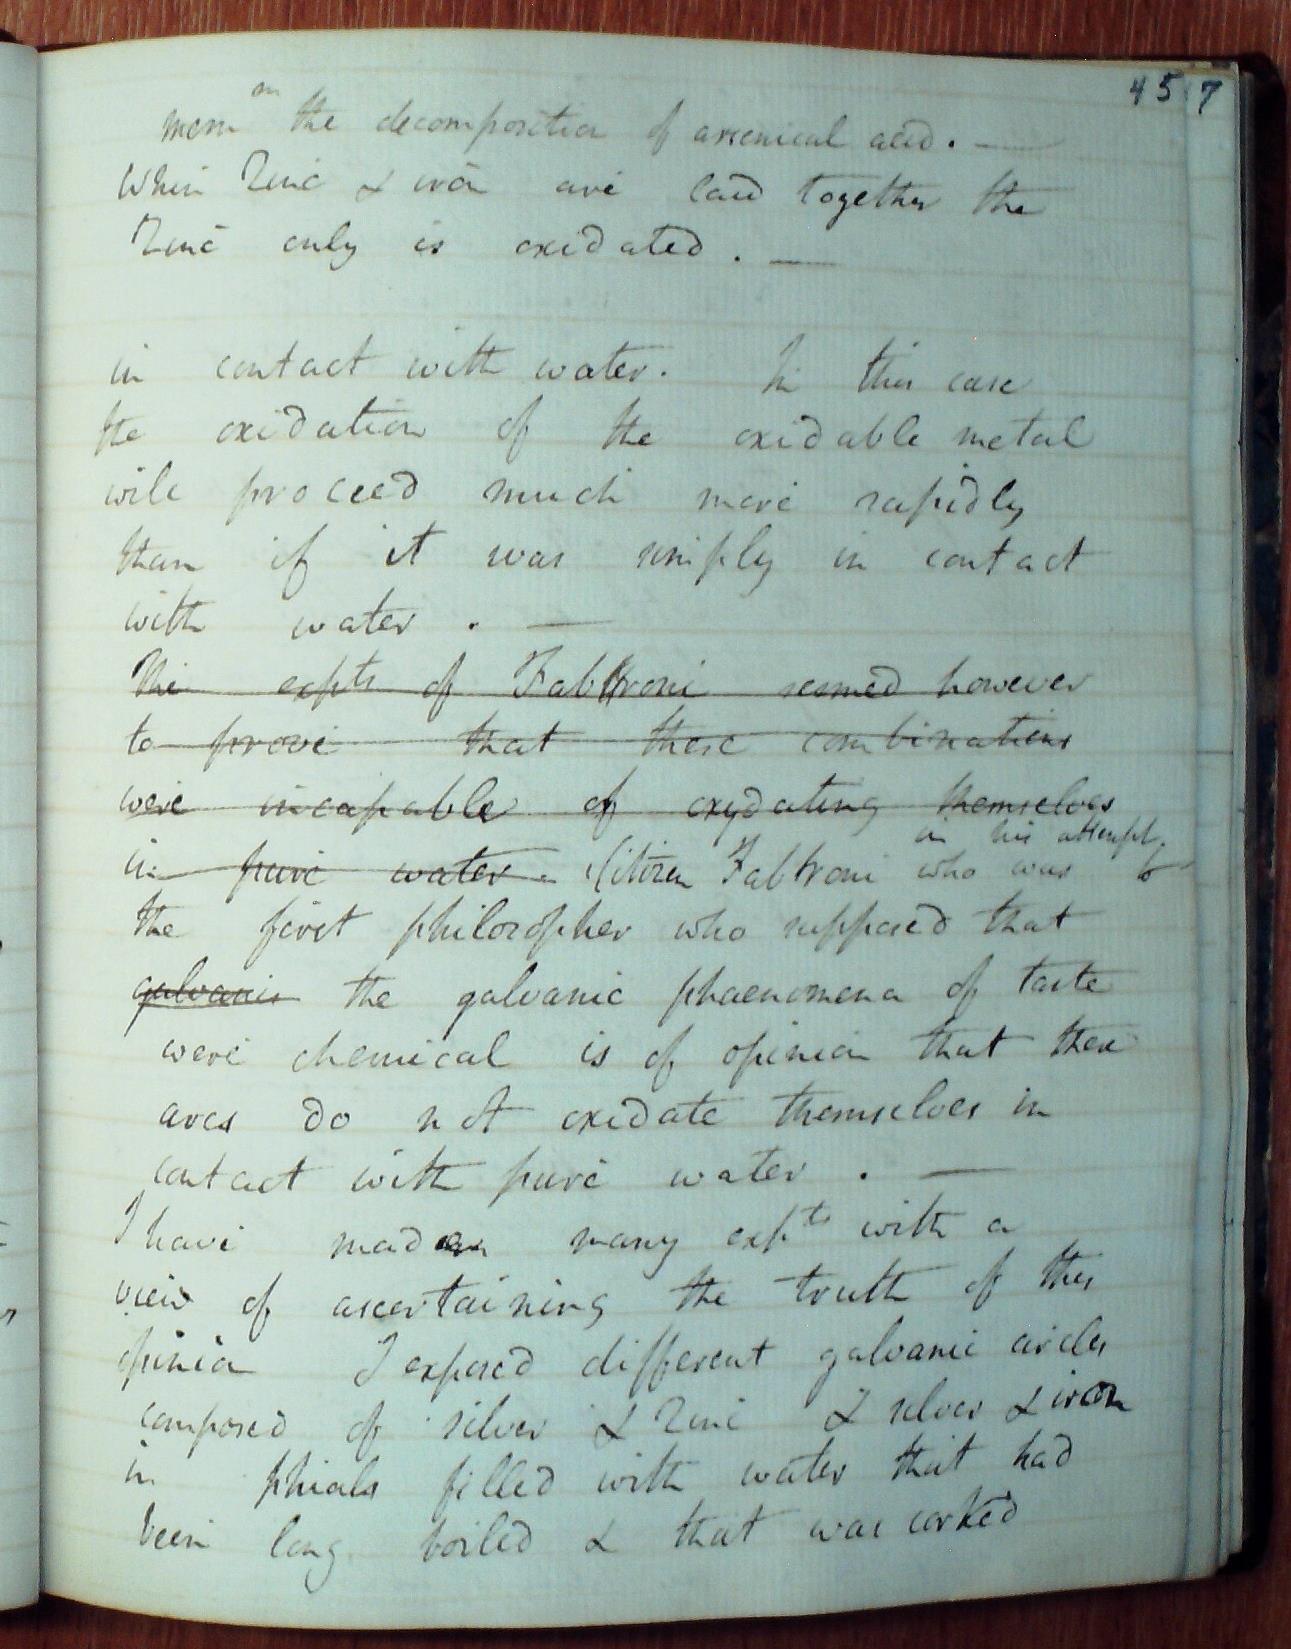 457
mem m the decomposition of arsenical acid. —
When Zinc & iron are laid together the
Zinc only is oxidated. —
in contact with water. In this case
the oxidation of the oxidable metal
will proceed much more rapidly
than if it was simply in contact
with water. —
The expts of Fabbroni seemed however
to prove that these combinations
were incapable of oxydating themselves
in his attempt
in pure water. Citizen Fabbroni who was to
the first philosopher who supposed that
galvanic the galvanic phaenomena of taste
were chemical is of opinion that these
arcs do not oxidate themselves in
contact with pure water. —
I have made many expts with a
view of ascertaining the truth of this
opinion I exposed different galvanic circles
composed of silver & Zinc & silver & iron
in phials filled with water that had
been long boiled & that was corked